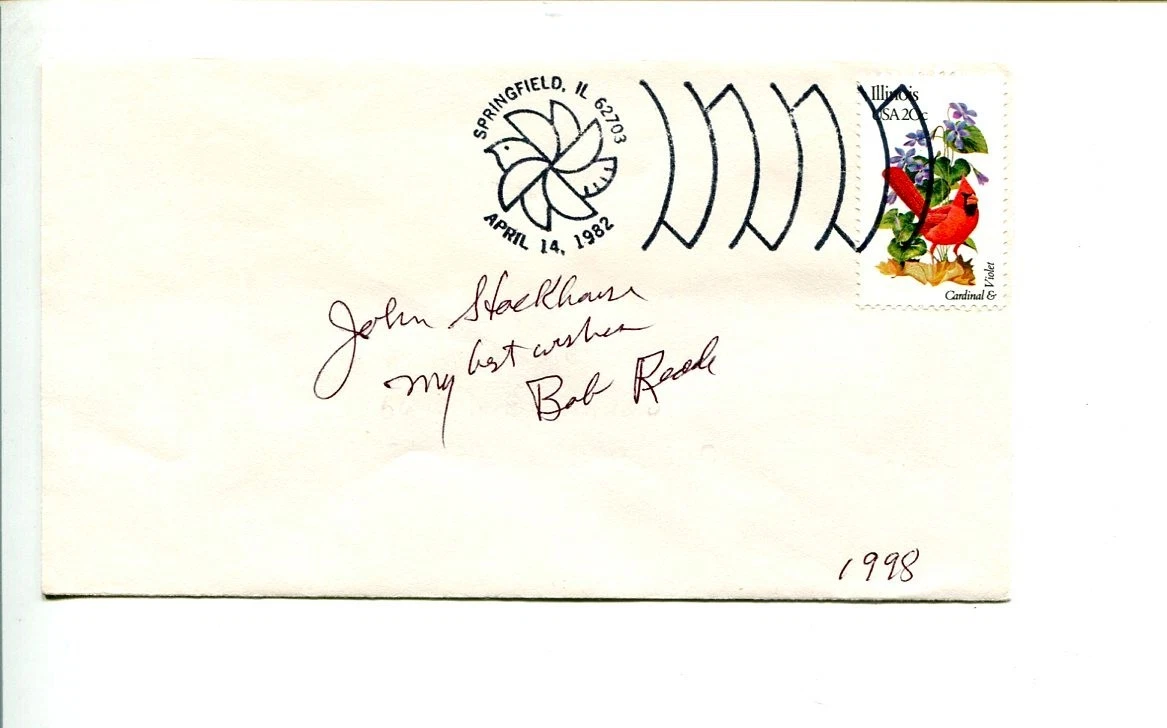 SPRINGFIELD, IL 62703
APRIL 14, 1982
Illinois
USA 20c
Cardinal & Violet
John Stockhouse
My best wishes
Bob Reade
1998